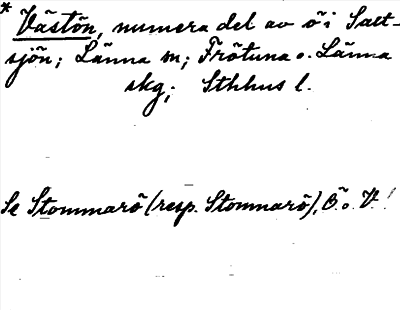 * Västön, numera del av ö i Salt-
sjön; Länna sn; Frötuna o. Länna
skg; Sthlms l.
Se Stommarö (resp. Stommarö), Ö. o. V.!